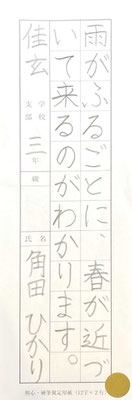 雨がふるごとに、春が近づ
いて来るのがわかります。
佳玄
支部
学校
三年
組
氏名
角田ひかり
硬心・硬筆規定用紙（12字×2行）